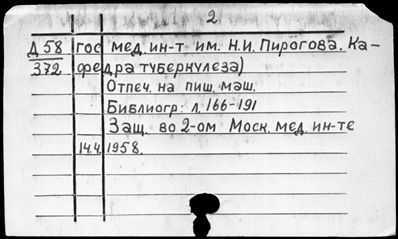 2
Д 58 гос мед. ин-т им. Н.И. Пирогова. Ка-
372 федра туберкулеза)
Отпеч. на пиш. маш.
Библиогр: л. 166-191
Защ. во 2-ом Моск. мед. ин-те
14.4.1958.